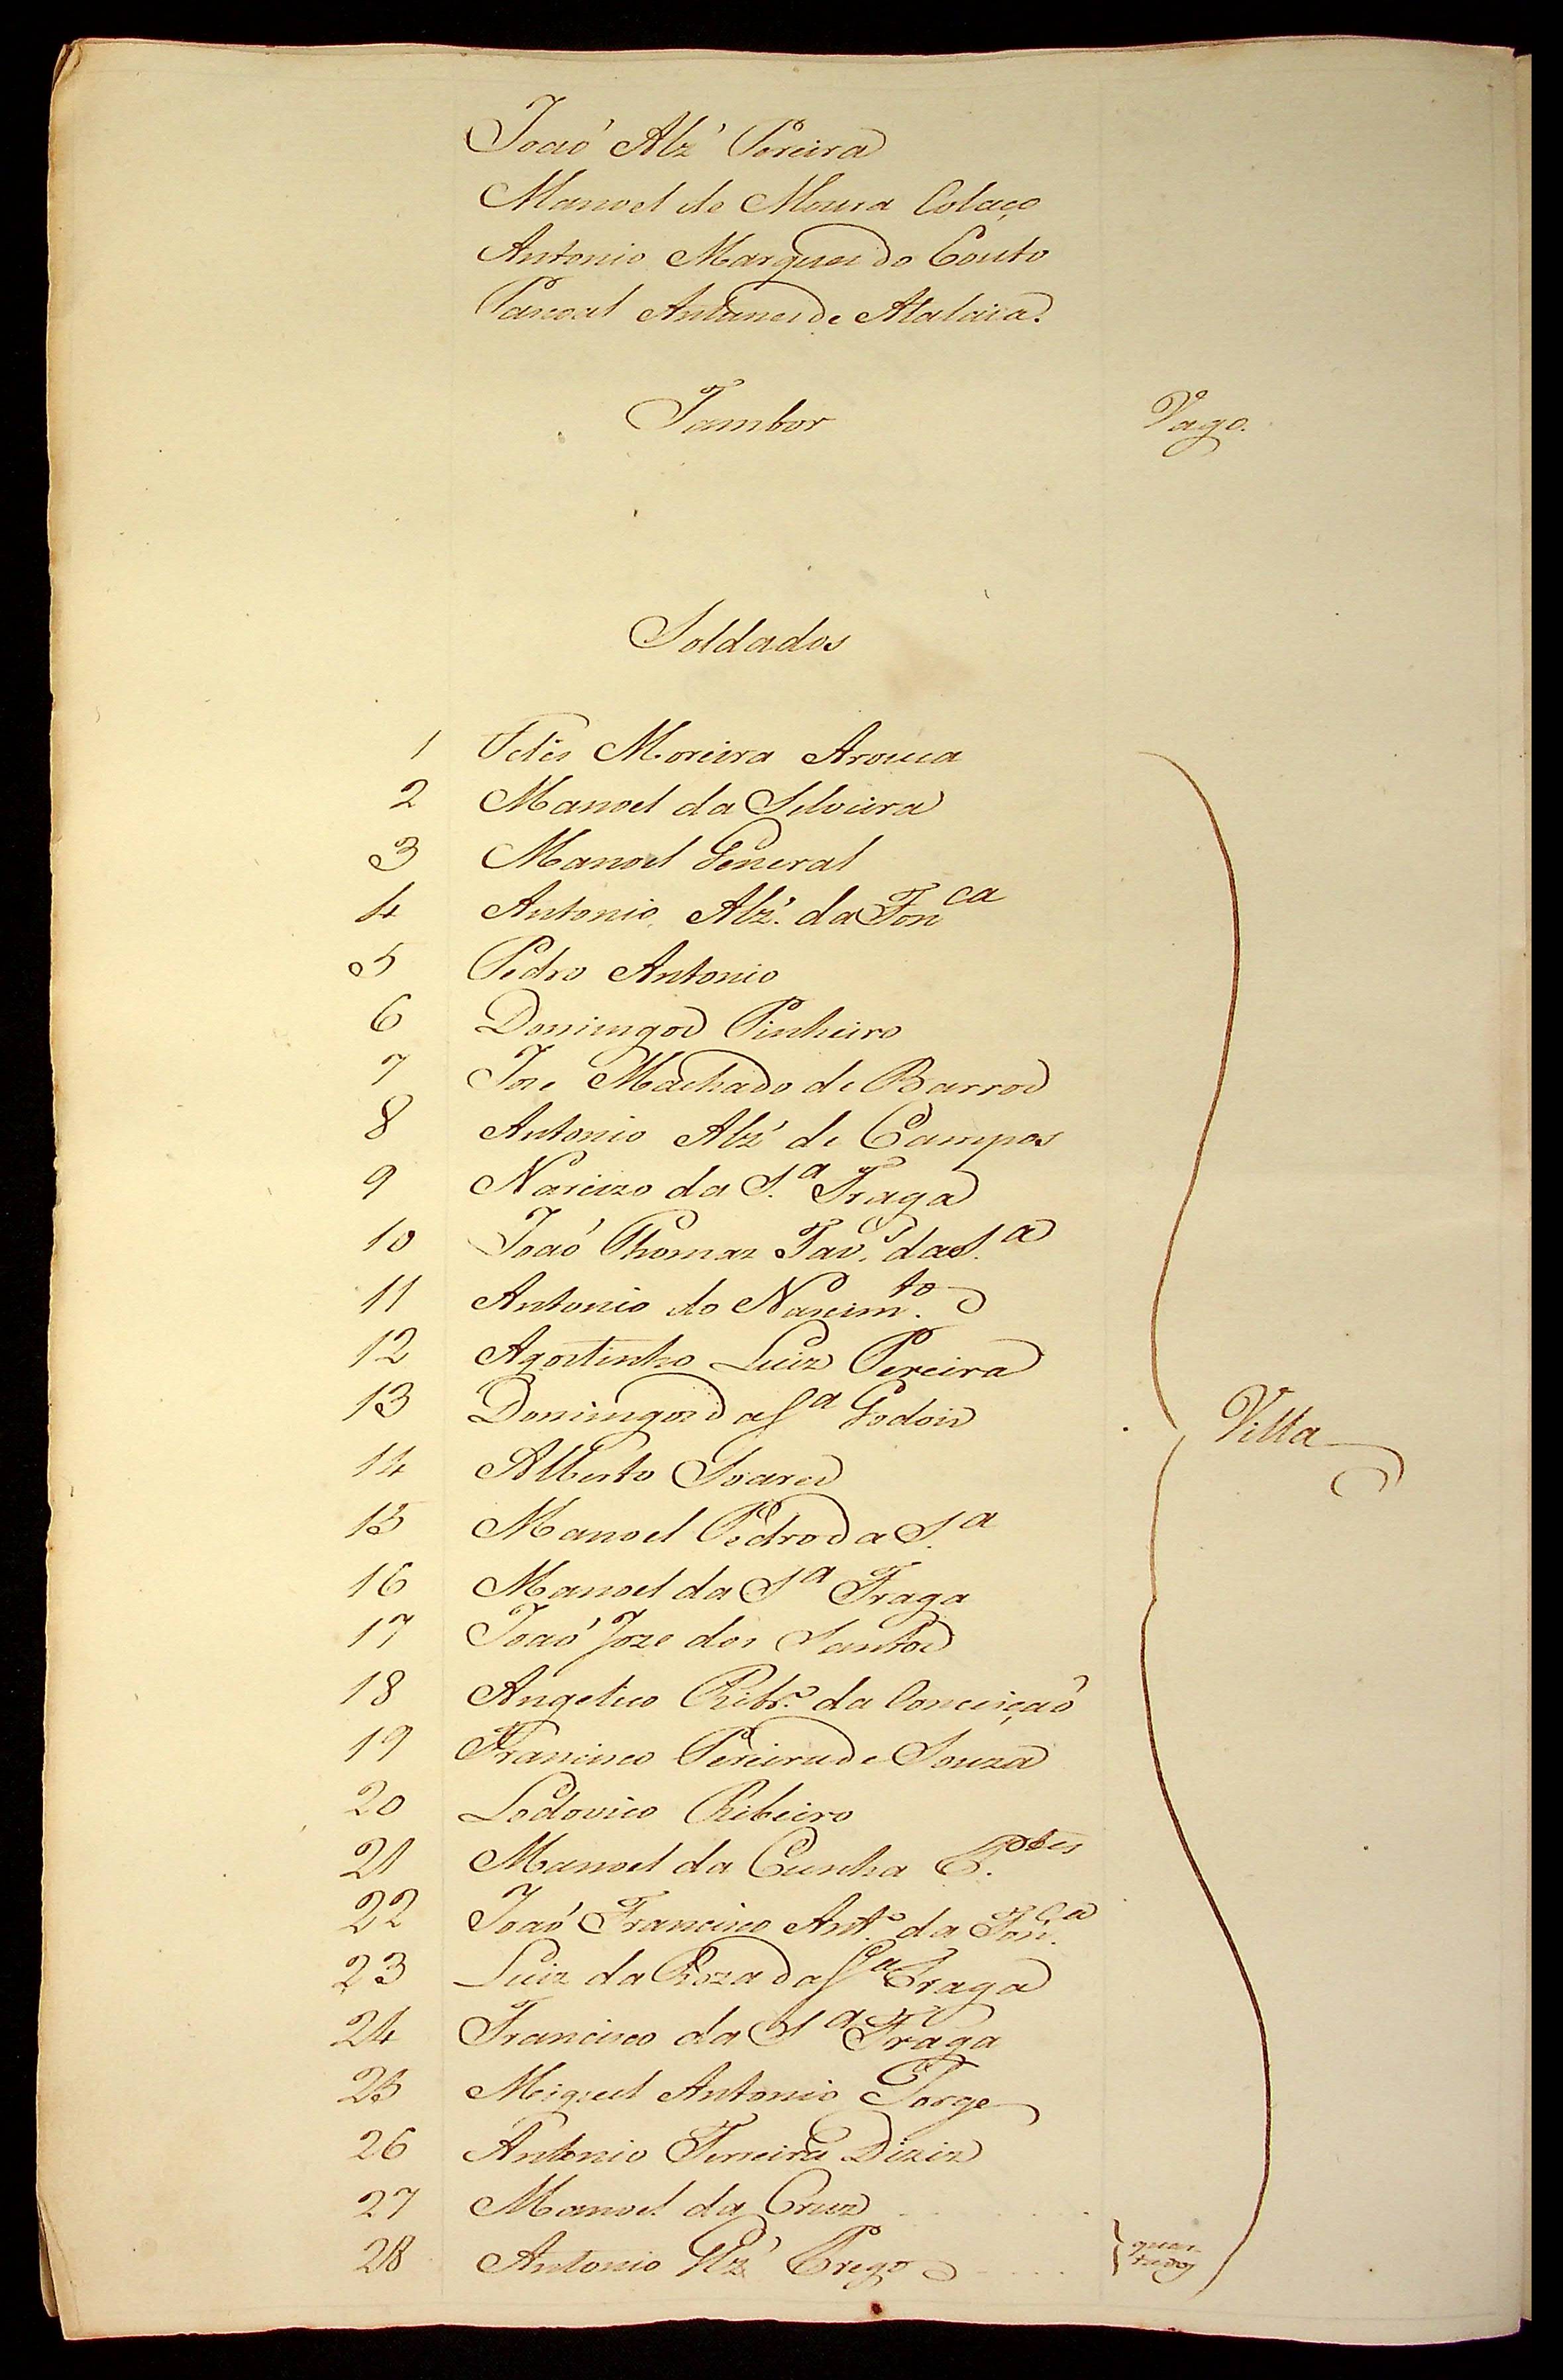 João Alz' Pereira
Manoel de Moura Colaço
Antonio Marques do Couto
Pascoal Antunes de Atalaia.
Tambor Vago.
Soldados
1 Felis Moreira Arouca
2 Manoel da Silveira
3 Manoel General
4 Antonio Alz'. da Fon^ca
5 Pedro Antonio
6 Domingos Pinheiro
7 Joze Machado de Barros
8 Antonio Alz' de Campos
9 Narcizo da S.^a Fraga
10 João Thomaz Tav.^s da S.^a
11 Antonio do Nascim.^to
12 Agostinho Luiz Pereira
13 Domingos da S^a Godois
14 Alberto Soares
15 Manoel Pedro da S.^a
16 Manoel da S^a Fraga
17 João Joze dos Santos
18 Angelico Ribr.^o da Conceição
19 Francisco Pereira de Souza
20 Lodovico Ribeiro
21 Manoel da Cunha
22 João Francisco Ant.^o da Fon.^ca
23 Luiz da Roza da S^a Fraga
24 Francisco da S^a Fraga
25 Miguel Antonio Jorge
26 Antonio Ferreira Diziz
27 Manoel da Cruz
28 Antonio Alz' Prego
Villa